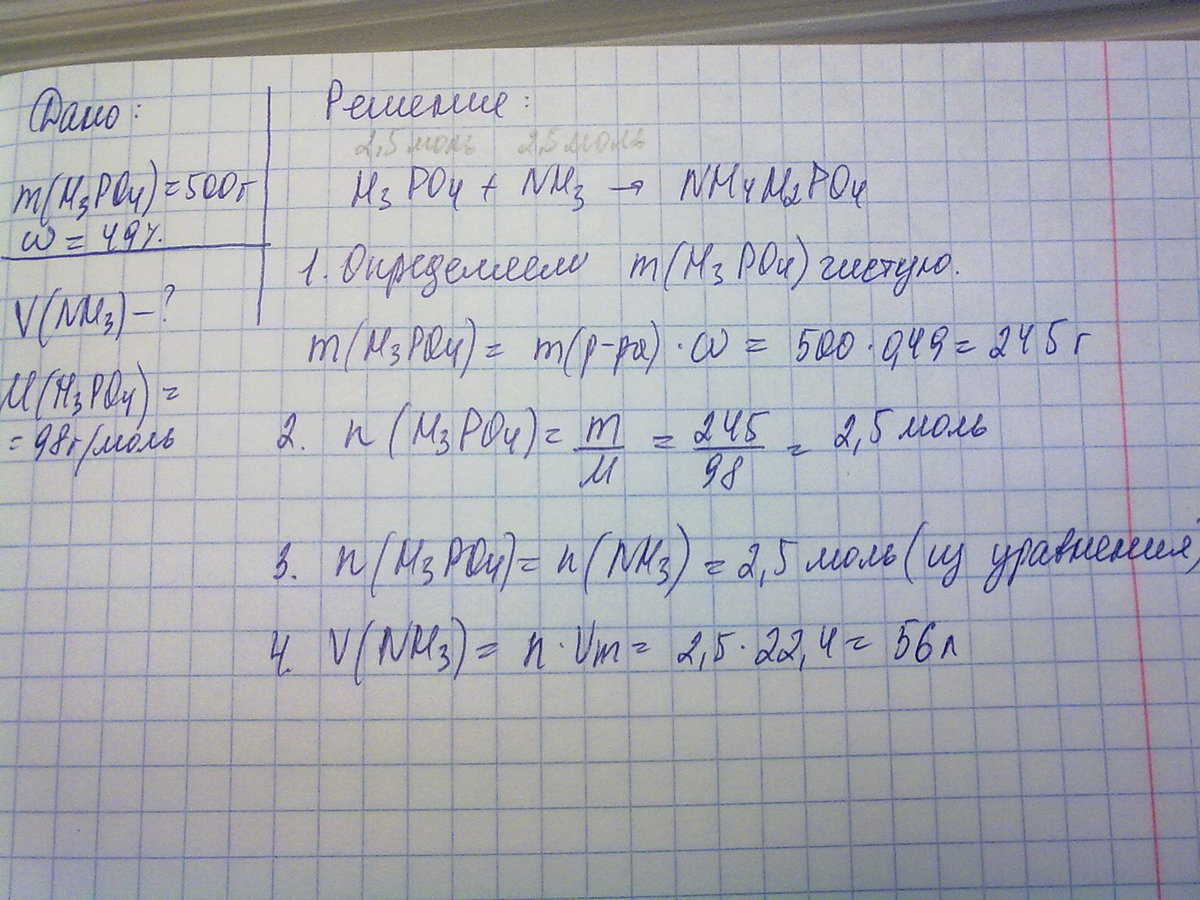 Дано:
m(H3PO4)=500г
ω = 49%.
V(NH3)-?
M(H3PO4) =
= 98г/моль
Решение:
2,5 моль 2,5 моль
H3PO4 + NH3 → NH4H2PO4
1. Определяем m(H3PO4) чистую.
m(H3PO4) = m(р-ра) · ω = 500 · 0,49 = 245 г
2. n (H3PO4) = m/M = 245/98 = 2,5 моль
3. n(H3PO4) = n(NH3) = 2,5 моль (из уравнения)
4. V(NH3) = n · Vm = 2,5 · 22,4 = 56л